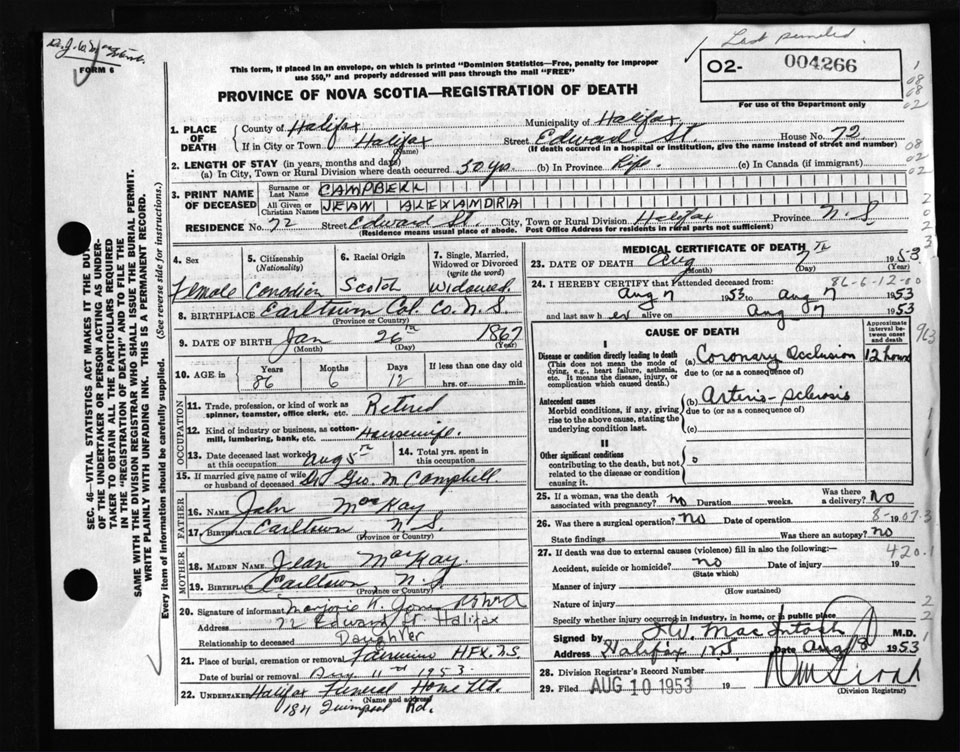 FORM 6
This form, if placed in an envelope, on which is printed "Dominion Statistics—Free, penalty for improper
use $50," and properly addressed will pass through the mail "FREE"
PROVINCE OF NOVA SCOTIA—REGISTRATION OF DEATH
O2- 004266
For use of the Department only
1. PLACE OF DEATH
County of Halifax Municipality of Halifax
If in City or Town Halifax (Name) Street Edward St. House No. 72
(If death occurred in a hospital or institution, give the name instead of street and number)
2. LENGTH OF STAY (in years, months and days)
(a) In City, Town or Rural Division where death occurred 50 yrs. (b) In Province Life. (c) In Canada (if immigrant)
3. PRINT NAME OF DECEASED
Surname or Last Name CAMPBELL
All Given or Christian Names JEAN ALEXANDRA
RESIDENCE No. 72 Street Edward St. City, Town or Rural Division Halifax Province N.S
(Residence means usual place of abode. Post Office Address for residents in rural parts not sufficient)
4. Sex Female
5. Citizenship (Nationality) Canadian
6. Racial Origin Scotch
7. Single, Married, Widowed or Divorced (write the word) Widowed.
8. BIRTHPLACE Earltown Col. Co. N.S.
(Province or Country)
9. DATE OF BIRTH Jan 26th 1867
(Month) (Day) (Year)
10. AGE in Years Months Days If less than one day old
86 6 12 hrs. or min.
OCCUPATION
11. Trade, profession, or kind of work as spinner, teamster, office clerk, etc. Retired
12. Kind of industry or business, as cotton-mill, lumbering, bank, etc. Housewife.
13. Date deceased last worked at this occupation Aug 5th
14. Total yrs. spent in this occupation
15. If married give name of wife or husband of deceased Dr Geo. M. Campbell
FATHER
16. Name John MacKay
17. Birthplace Earltown, N.S.
(Province or Country)
MOTHER
18. Maiden Name Jean MacKay.
19. Birthplace Earltown N.S.
(Province or Country)
20. Signature of informant Marjorie
Address 72 Edward St. Halifax
Relationship to deceased Daughter
21. Place of burial, cremation or removal HFX. N.S.
Date of burial or removal Aug 11th 1953.
22. UNDERTAKER Halifax Funeral Home Ltd.
(Name and address)
184 Quinpool Rd.
MEDICAL CERTIFICATE OF DEATH
23. DATE OF DEATH Aug 7th 1953
(Month) (Day) (Year)
24. I HEREBY CERTIFY that I attended deceased from: 86-6-12-00
Aug 7 1953 to Aug 7 1953
and last saw her alive on Aug 7 1953
CAUSE OF DEATH
Approximate interval between onset and death
I
Disease or condition directly leading to death
(This does not mean the mode of dying, e.g., heart failure, asthenia, etc. It means the disease, injury, or complication which caused death.)
(a) Coronary Occlusion 12 hours
due to (or as a consequence of)
Antecedent causes
Morbid conditions, if any, giving rise to the above cause, stating the underlying condition last.
(b) Arterio-sclerosis
due to (or as a consequence of)
(c)
II
Other significant conditions
contributing to the death, but not related to the disease or condition causing it.
25. If a woman, was the death associated with pregnancy? no Duration weeks. Was there a delivery? No
26. Was there a surgical operation? No Date of operation
State findings Was there an autopsy? no
27. If death was due to external causes (violence) fill in also the following:— 420.1
Accident, suicide or homicide? no Date of injury 19
(State which)
Manner of injury
(How sustained)
Nature of injury
Specify whether injury occurred in industry, in home, or in public place
Signed by MacIntosh M.D.
Address Halifax NS Date Aug 8 1953
28. Division Registrar's Record Number
29. Filed AUG 10 1953 19
(Division Registrar)
SEC. 46—VITAL STATISTICS ACT MAKES IT THE DUTY
OF THE UNDERTAKER OR PERSON ACTING AS UNDER-
TAKER TO OBTAIN ALL THE PARTICULARS REQUIRED
IN THE "REGISTRATION OF DEATH" AND TO FILE THE
SAME WITH THE DIVISION REGISTRAR WHO SHALL ISSUE THE BURIAL PERMIT.
WRITE PLAINLY WITH UNFADING INK. THIS IS A PERMANENT RECORD.
Every item of information should be carefully supplied. (See reverse side for instructions.)